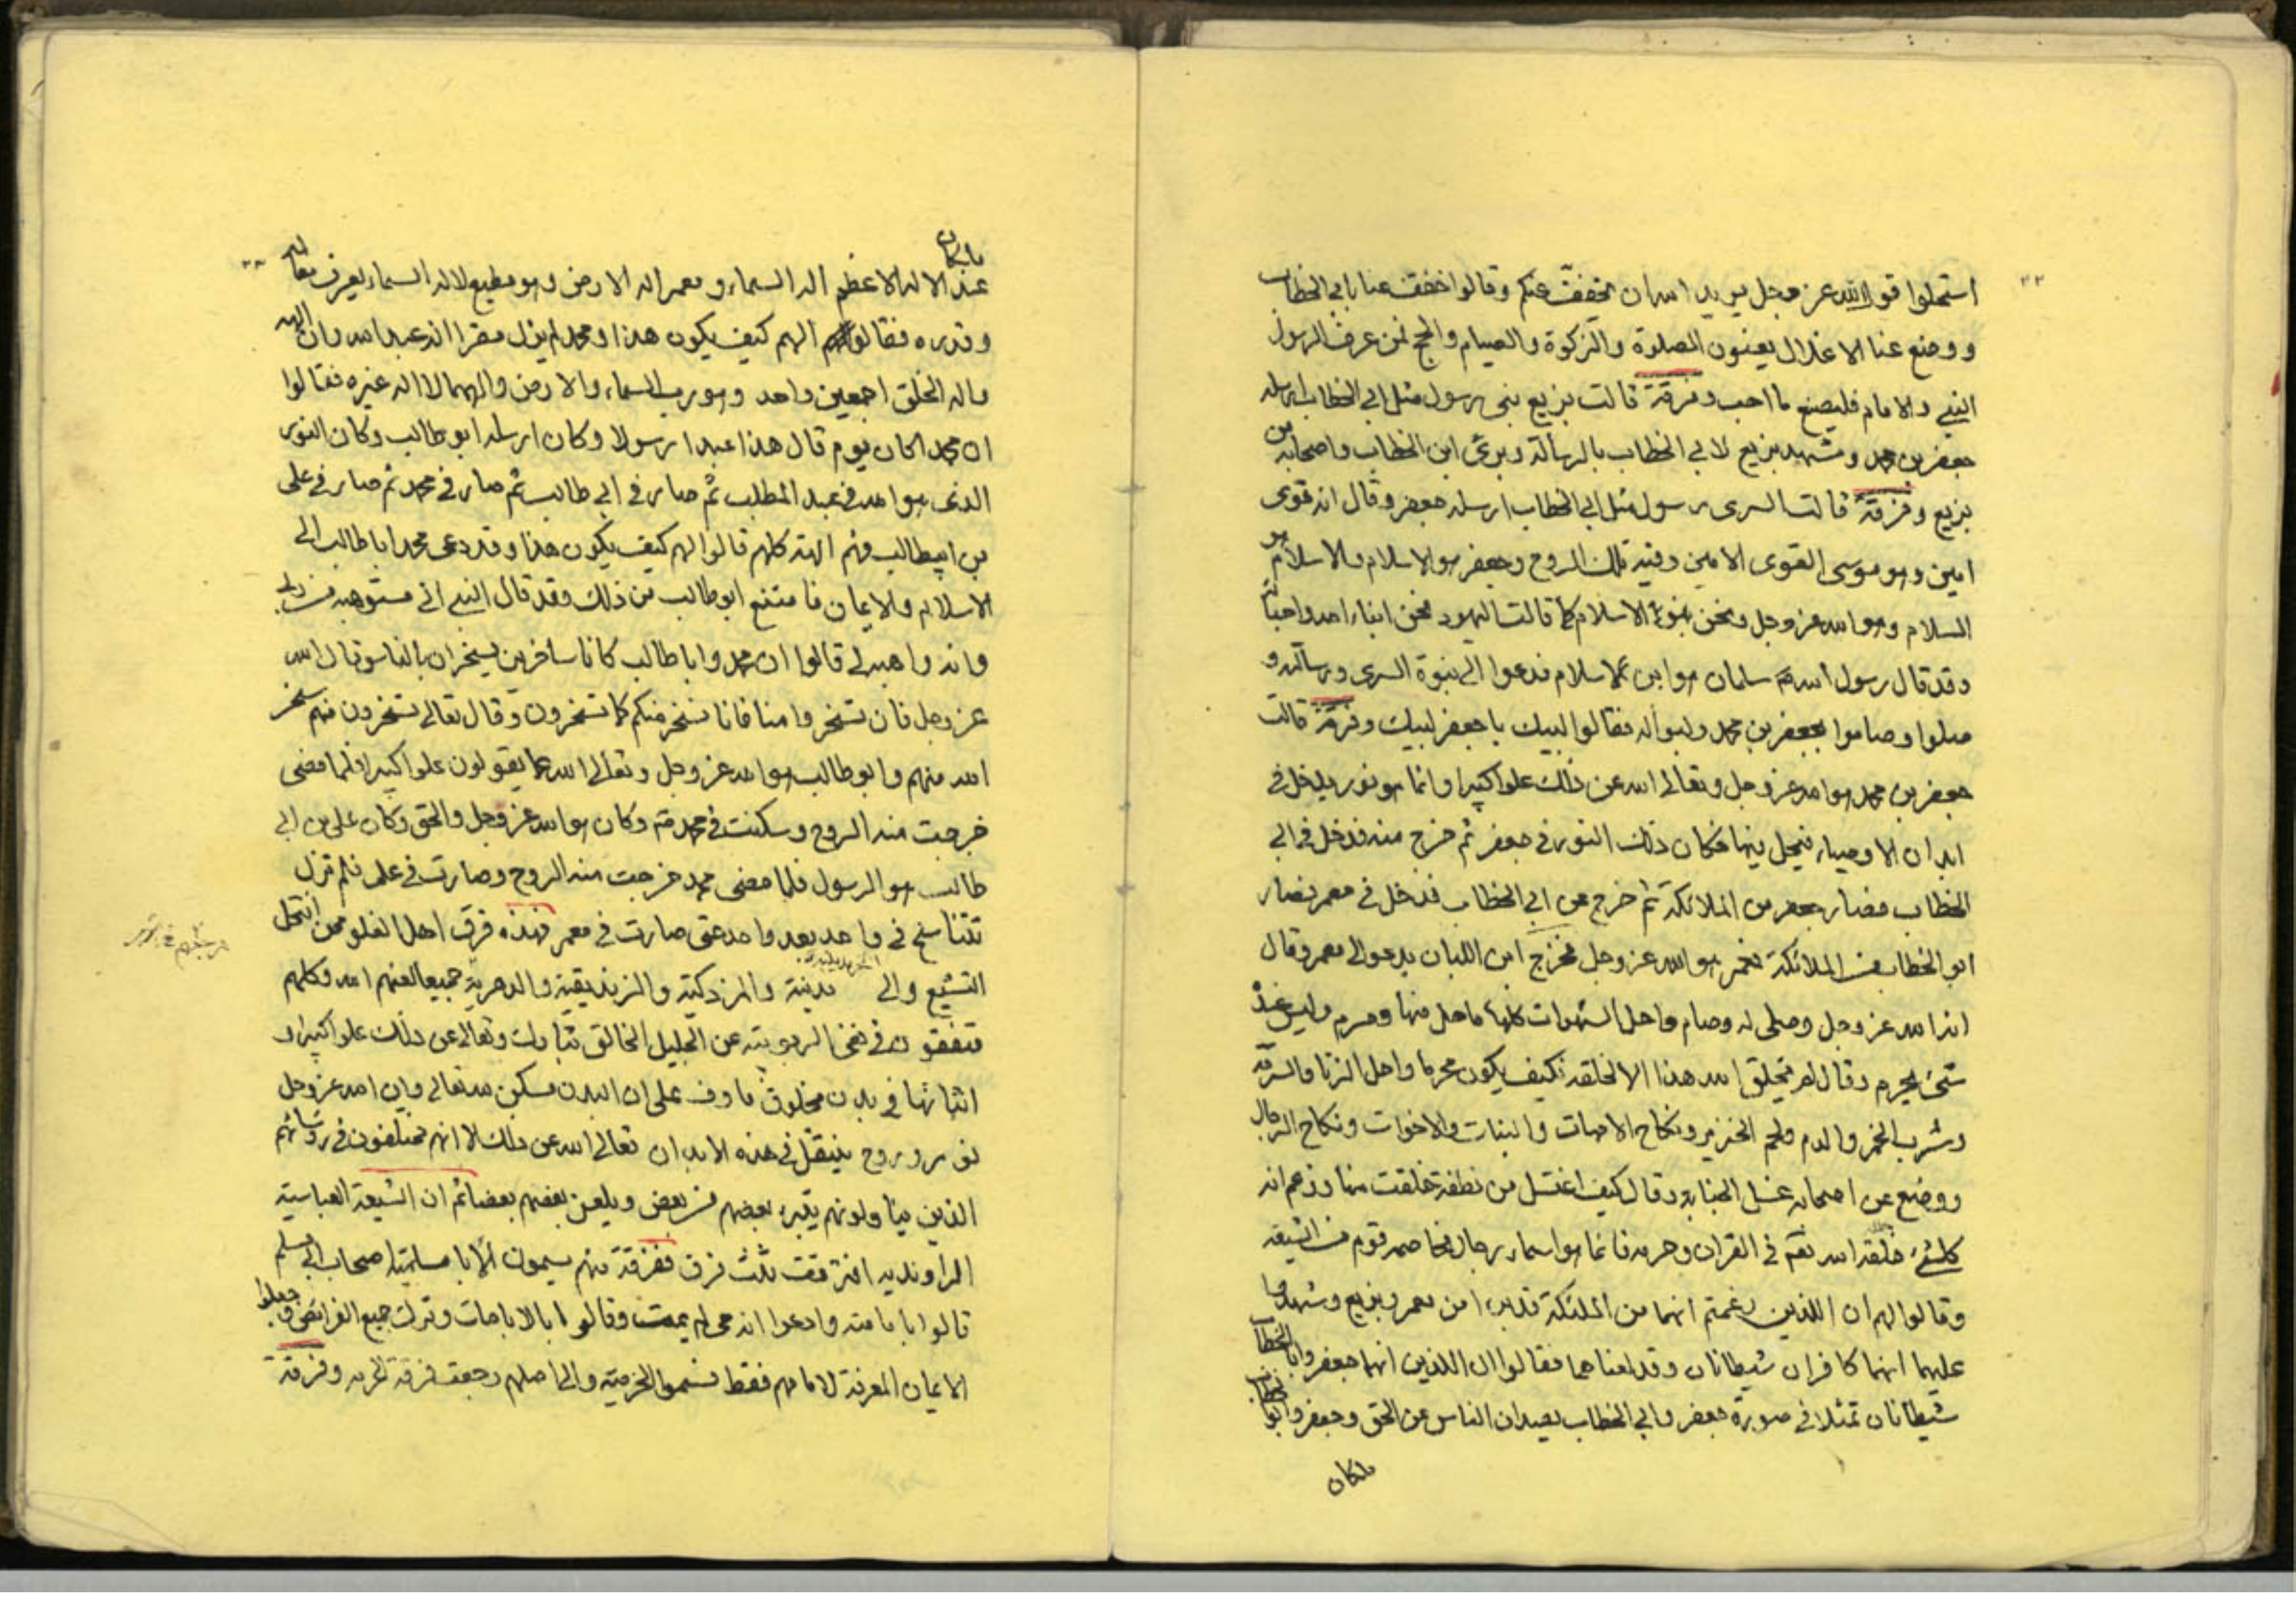 استحلوا قول الله عز وجل يريد الله ان يخفف عنكم وقالوا خفف عنا بابي الخطاب
ووضع عنا الاغلال يعنون الصلوة والزكوة والصيام والحج فمن عرف الرسول
النبي والامام فليصنع ما احب وفرقة قالت بزيع نبي رسول مثل ابي الخطاب ارسله
جعفر بن محمد وشهد بزيع لابي الخطاب بالرسالة وبرئ ابن الخطاب واصحابه من
بزيع وفرقة قالت السرى رسول مثل ابي الخطاب ارسله جعفر وقال انه قوى
امين وهو موسى القوى الامين وفيه تلك الروح وجعفر هو الاسلام والاسلام هو
السلام وهو الله عز وجل ونحن بنو الاسلام كما قالت اليهود نحن ابناء الله واحباؤه
وقد قال رسول الله سلمان هو ابن الاسلام فدعوا الى نبوة السرى ورسالته و
صلوا وصاموا لجعفر بن محمد ولبوا له فقالوا لبيك يا جعفر لبيك وفرقة قالت
جعفر بن محمد هو الله عز وجل وتعالى الله عن ذلك علوا كبيرا وانما هو نور يدخل في
ابدان الاوصياء فيحل فيها فكان ذلك النور في جعفر ثم خرج منه فدخل في ابي
الخطاب فصار جعفر من الملائكة ثم خرج من ابي الخطاب فدخل في معمر فصار
ابو الخطاب من الملائكة فمعمر هو الله عز وجل فخرج ابن اللبان يدعو الى معمر وقال
انه الله عز وجل وصلى له وصام واحل الشهوات كلها ما حل منها وحرم وليس عنده
شئ يحرم وقال لم يخلق الله هذا الا لخلقه فكيف يكون محرما واحل الزنا والسرقة
وشرب الخمر والدم ولحم الخنزير ونكاح الامهات والبنات والاخوات ونكاح الرجال
ووضع عن اصحابه غسل الجنابة وقال كيف اغتسل من نطفة خلقت منها وزعم ان
كل شئ خلقه الله في القران وحرمه فانما هو اسماء رجال فخاصمه قوم من الشيعة
وقالوا لهم ان اللذين زعمتم انهما من الملئكة قد برءا من معمر وبزيع وشهدا
عليهما انهما كافران شيطانان وقد لعناهما فقالوا ان اللذين انهما جعفر وابا الخطاب
شيطانان تمثلا في صورة جعفر وابي الخطاب يصدان الناس عن الحق وجعفر وابو الخطاب
ملكان
ملكان
عند الاله الاعظم اله السماء ومعمر اله الارض وهو مطيع لاله السماء يعرف
وقدره فقالوا لهم كيف يكون هذا ومحمد لم يزل مقرا انه عبد الله وان الهه
واله الخلق اجمعين واحد وهو رب السماء والارض والههما لا اله غيره فقالوا
ان محمدا كان يوم قال هذا عبدا رسولا وكان ارسله ابو طالب وكان النور
الذى هو الله في عبد المطلب ثم صار في ابي طالب ثم صار في محمد ثم صار في على
بن ابيطالب فهم الهة كلهم قالوا لهم كيف يكون هذا وقد دعى محمد ابا طالب الى
الاسلام والايمان فامتنع ابو طالب من ذلك وقد قال النبي اني مستوهبه من ربي
وانه واهبه لي قالوا ان محمد وابا طالب كانا ساخرين يسخران بالناس قال الله
عز وجل فان تسخروا منا فانا نسخر منكم كما تسخرون وقال تعالى تسخرون منهم سخر
الله منهم وابو طالب هو الله عز وجل وتعالى الله عما يقولون علوا كبيرا فلما مضى
خرجت منه الروح وسكنت في محمد وكان هو الله عز وجل والحق وكان على بن ابي
طالب هو الرسول فلما مضى محمد خرجت منه الروح وصارت في على فلم تزل
تتناسخ في واحد بعد واحد حتى صارت في معمر فهذه فرق اهل الغلو ممن انتحل
التشيع والى دينية والمزدكية والزنديقية والدهرية جميعا لعنهم الله وكلهم
متفقون في نفى الربوبية عن الجليل الخالق تبارك وتعالى عن ذلك علوا كبيرا و
اثباتها في بدن مخلوق ماوف على ان البدن مسكن لله تعالى وان الله عز وجل
نور وروح ينتقل في هذه الابدان تعالى الله عن ذلك الا انهم مختلفون في رؤسائهم
الذين يتولونهم يتبرء بعضهم من بعض ويلعن بعضهم بعضا ثم ان الشيعة العباسية
الراوندية افترقت ثلث فرق ففرقة منهم يسمون الابا مسلمية اصحاب ابي مسلم
قالوا بامامته وادعوا انه حي لم يمت وقالوا بالاباحات وترك جميع الفرائض وجعلوا
الايمان المعرفة لامامهم فقط فسموا الخرمية والى اصلهم رجعت فرقة الخرمية وفرقة